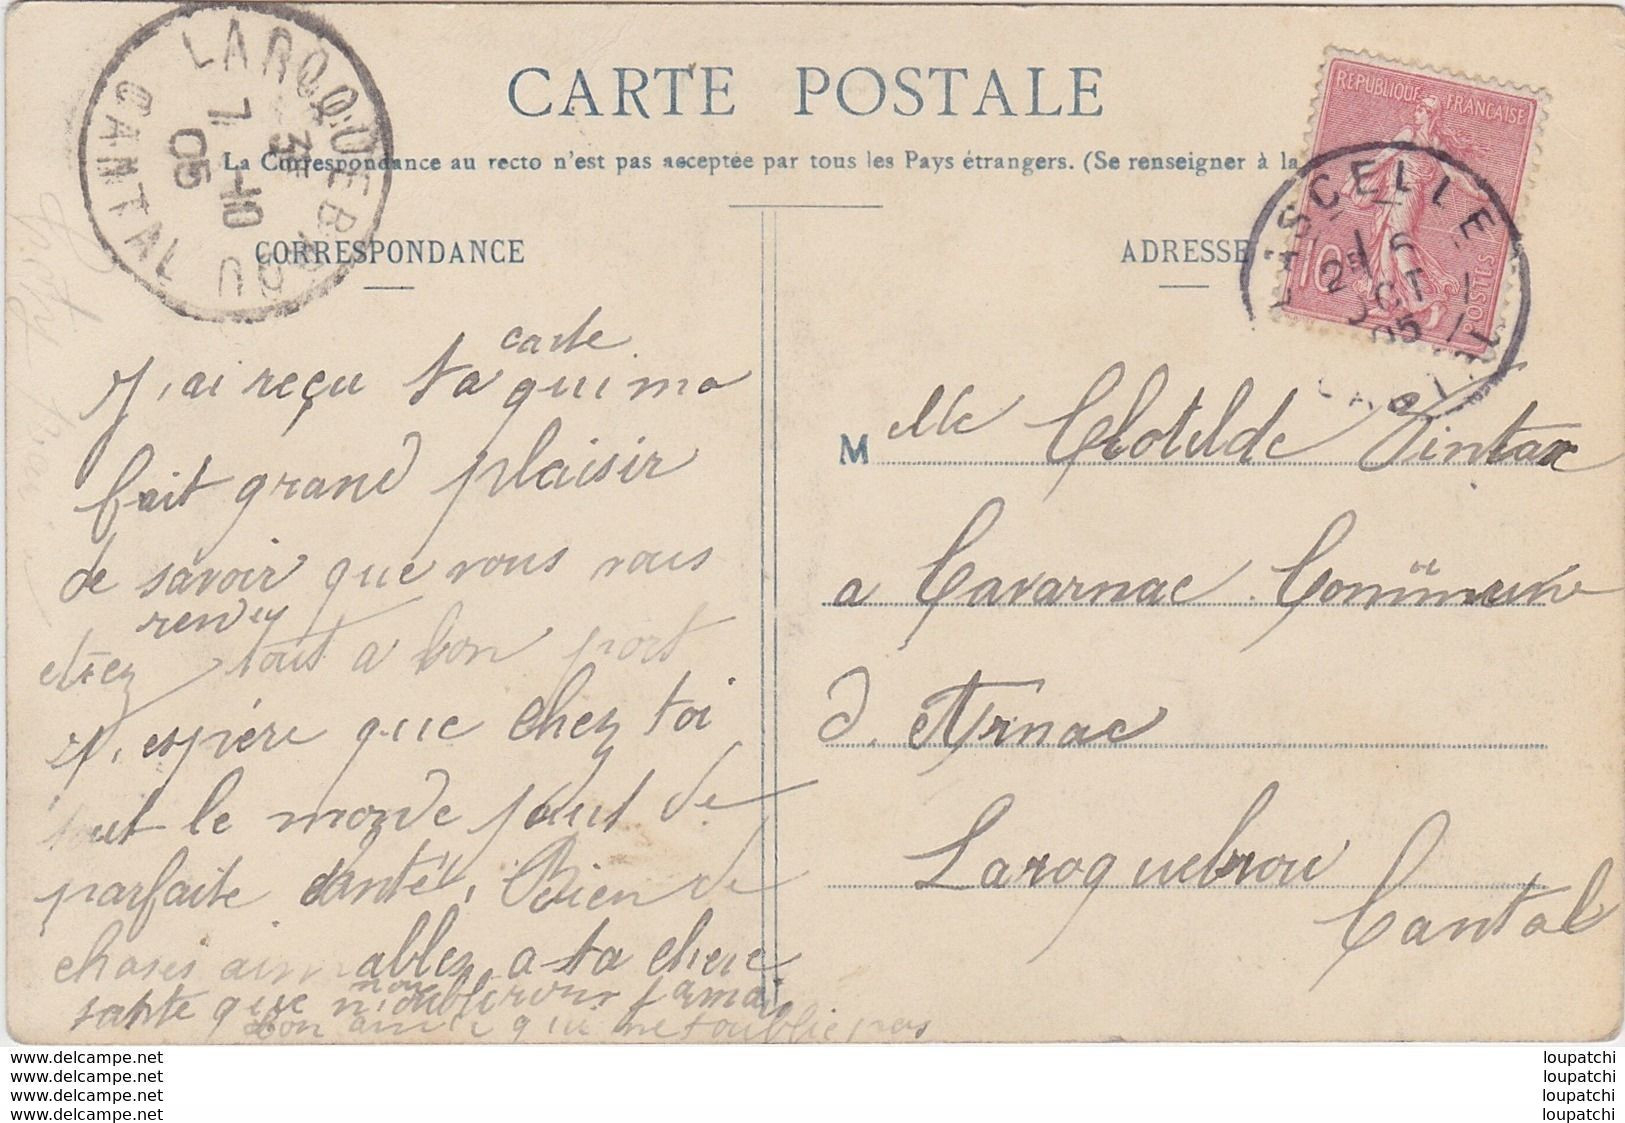 CARTE POSTALE
La Correspondance au recto n'est pas acceptée par tous les Pays étrangers. (Se renseigner à la
CORRESPONDANCE
ADRESSE
LAROQUEBROU
CANTAL
7 -10
05
REPUBLIQUE FRANÇAISE
10
POSTES
SCELLE
6
OCT
05
carte
J'ai reçu ta qui ma
fait grand plaisir
de savoir que vous vous
rendez
etiez tout a bon port
J'espère que chez toi
tout le monde jouit de
parfaite santé, Bien de
choses aimables a ta chere
tante que nous n'oublirons jamais
ton amie qui ne t'oublie pas
Melle Clotilde
a Cavarnac Commune
d'Arnac
Laroquebrou
Cantal
www.delcampe.net
www.delcampe.net
www.delcampe.net
www.delcampe.net
loupatchi
loupatchi
loupatchi
loupatchi